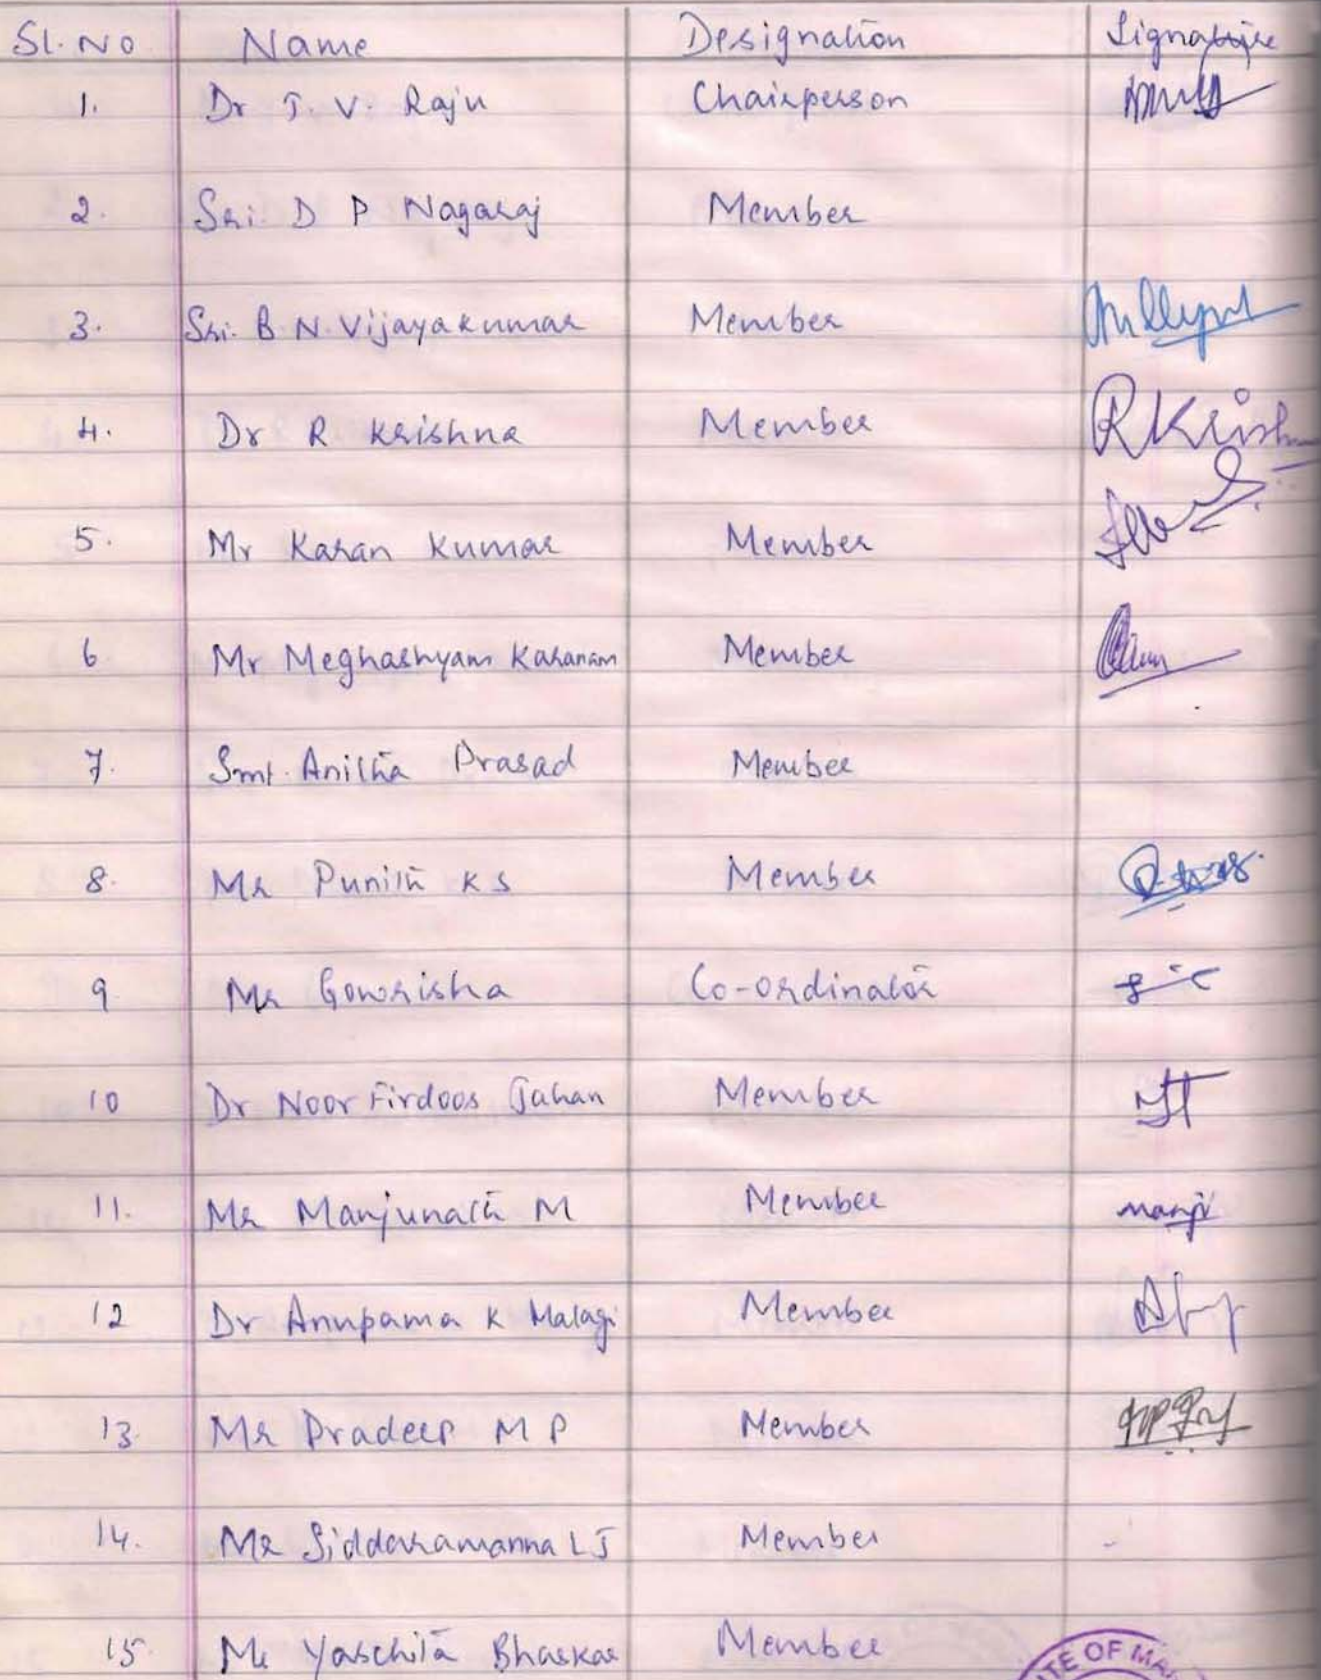 Sl. No Name Designation Signature
1. Dr T. V. Raju Chairperson
2. Sri D P Nagaraj Member
3. Sri. B. N. Vijayakumar Member
4. Dr R Krishna Member R Krish
5. Mr Karan Kumar Member
6 Mr Meghashyam Karanam Member
7. Smt. Anitha Prasad Member
8. Mr Punith K S Member
9 Mr Gowrisha Co-ordinator
10 Dr Noor Firdoos Jahan Member
11. Mr Manjunath M Member manju
12 Dr Anupama K Malagi Member
13. Mr Pradeep M P Member
14. Mr Siddaramanna L J Member
15 Bhaskar Member
TE OF MA